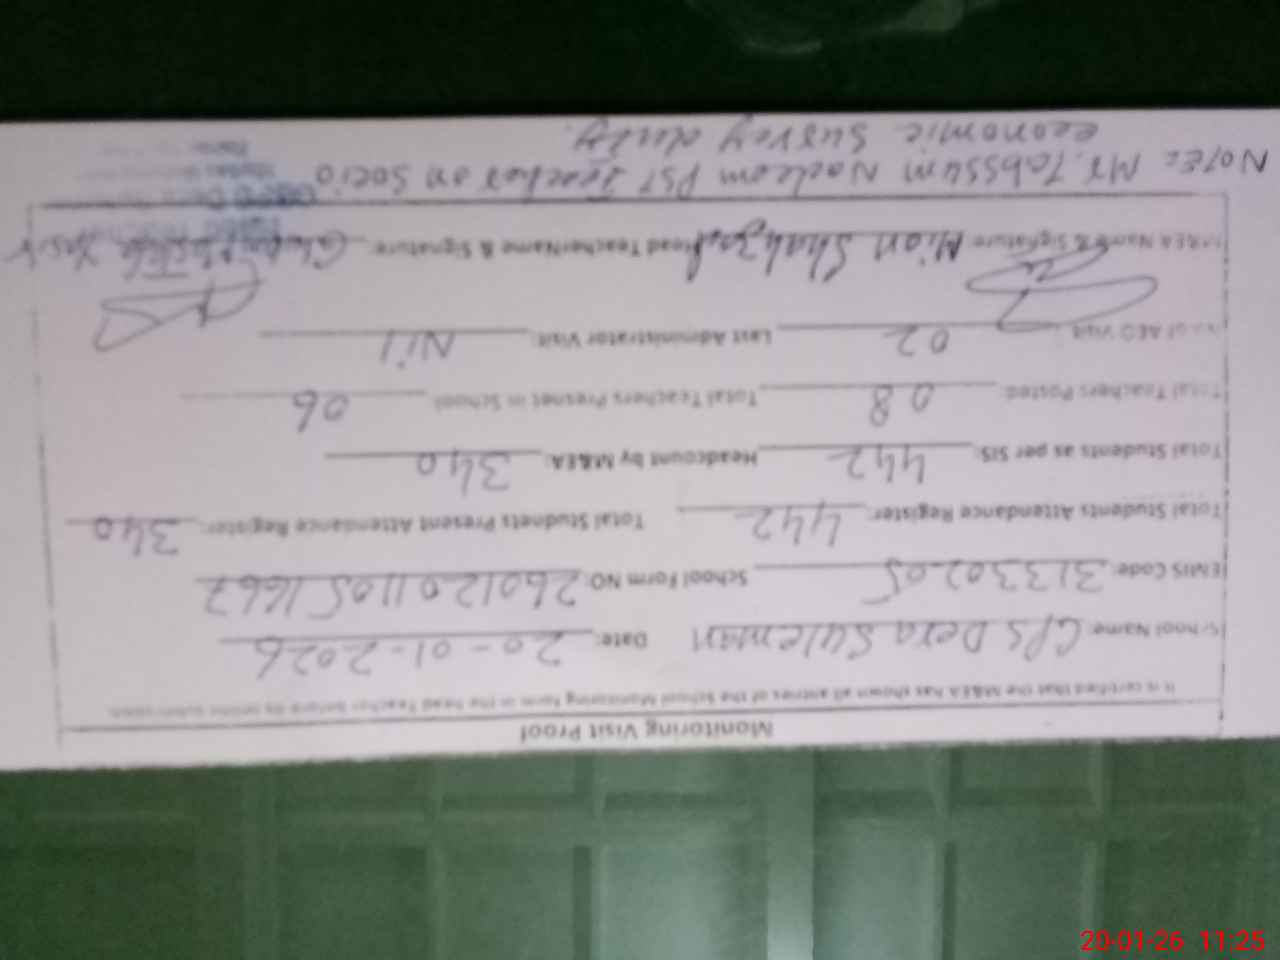 Monitoring Visit Proof
It is certified that the M&EA has shown all entries of the School Monitoring form to the head Teacher before its online submission
School Name: GPS Dera Suleman Date: 20-01-2026
EMIS Code: 31330205 School Form NO: 260120110516 67
Total Students Attendance Register: 442 Total Studnets Present Attendance Register: 340
Total Students as per SIS: 442 Headcount by M&EA: 340
Total Teachers Posted: 08 Total Teachers Presnet in School: 06
No of AEO Visit: 02 Last Administrator Visit: Nil
M&EA Name & Signature: Mian Shahzad Head TeacherName & Signature: Yasir
NOTE: Mr. Tabssum Nadeem PST Teacher on Socio
economic survey duty.
20-01-26 11:25